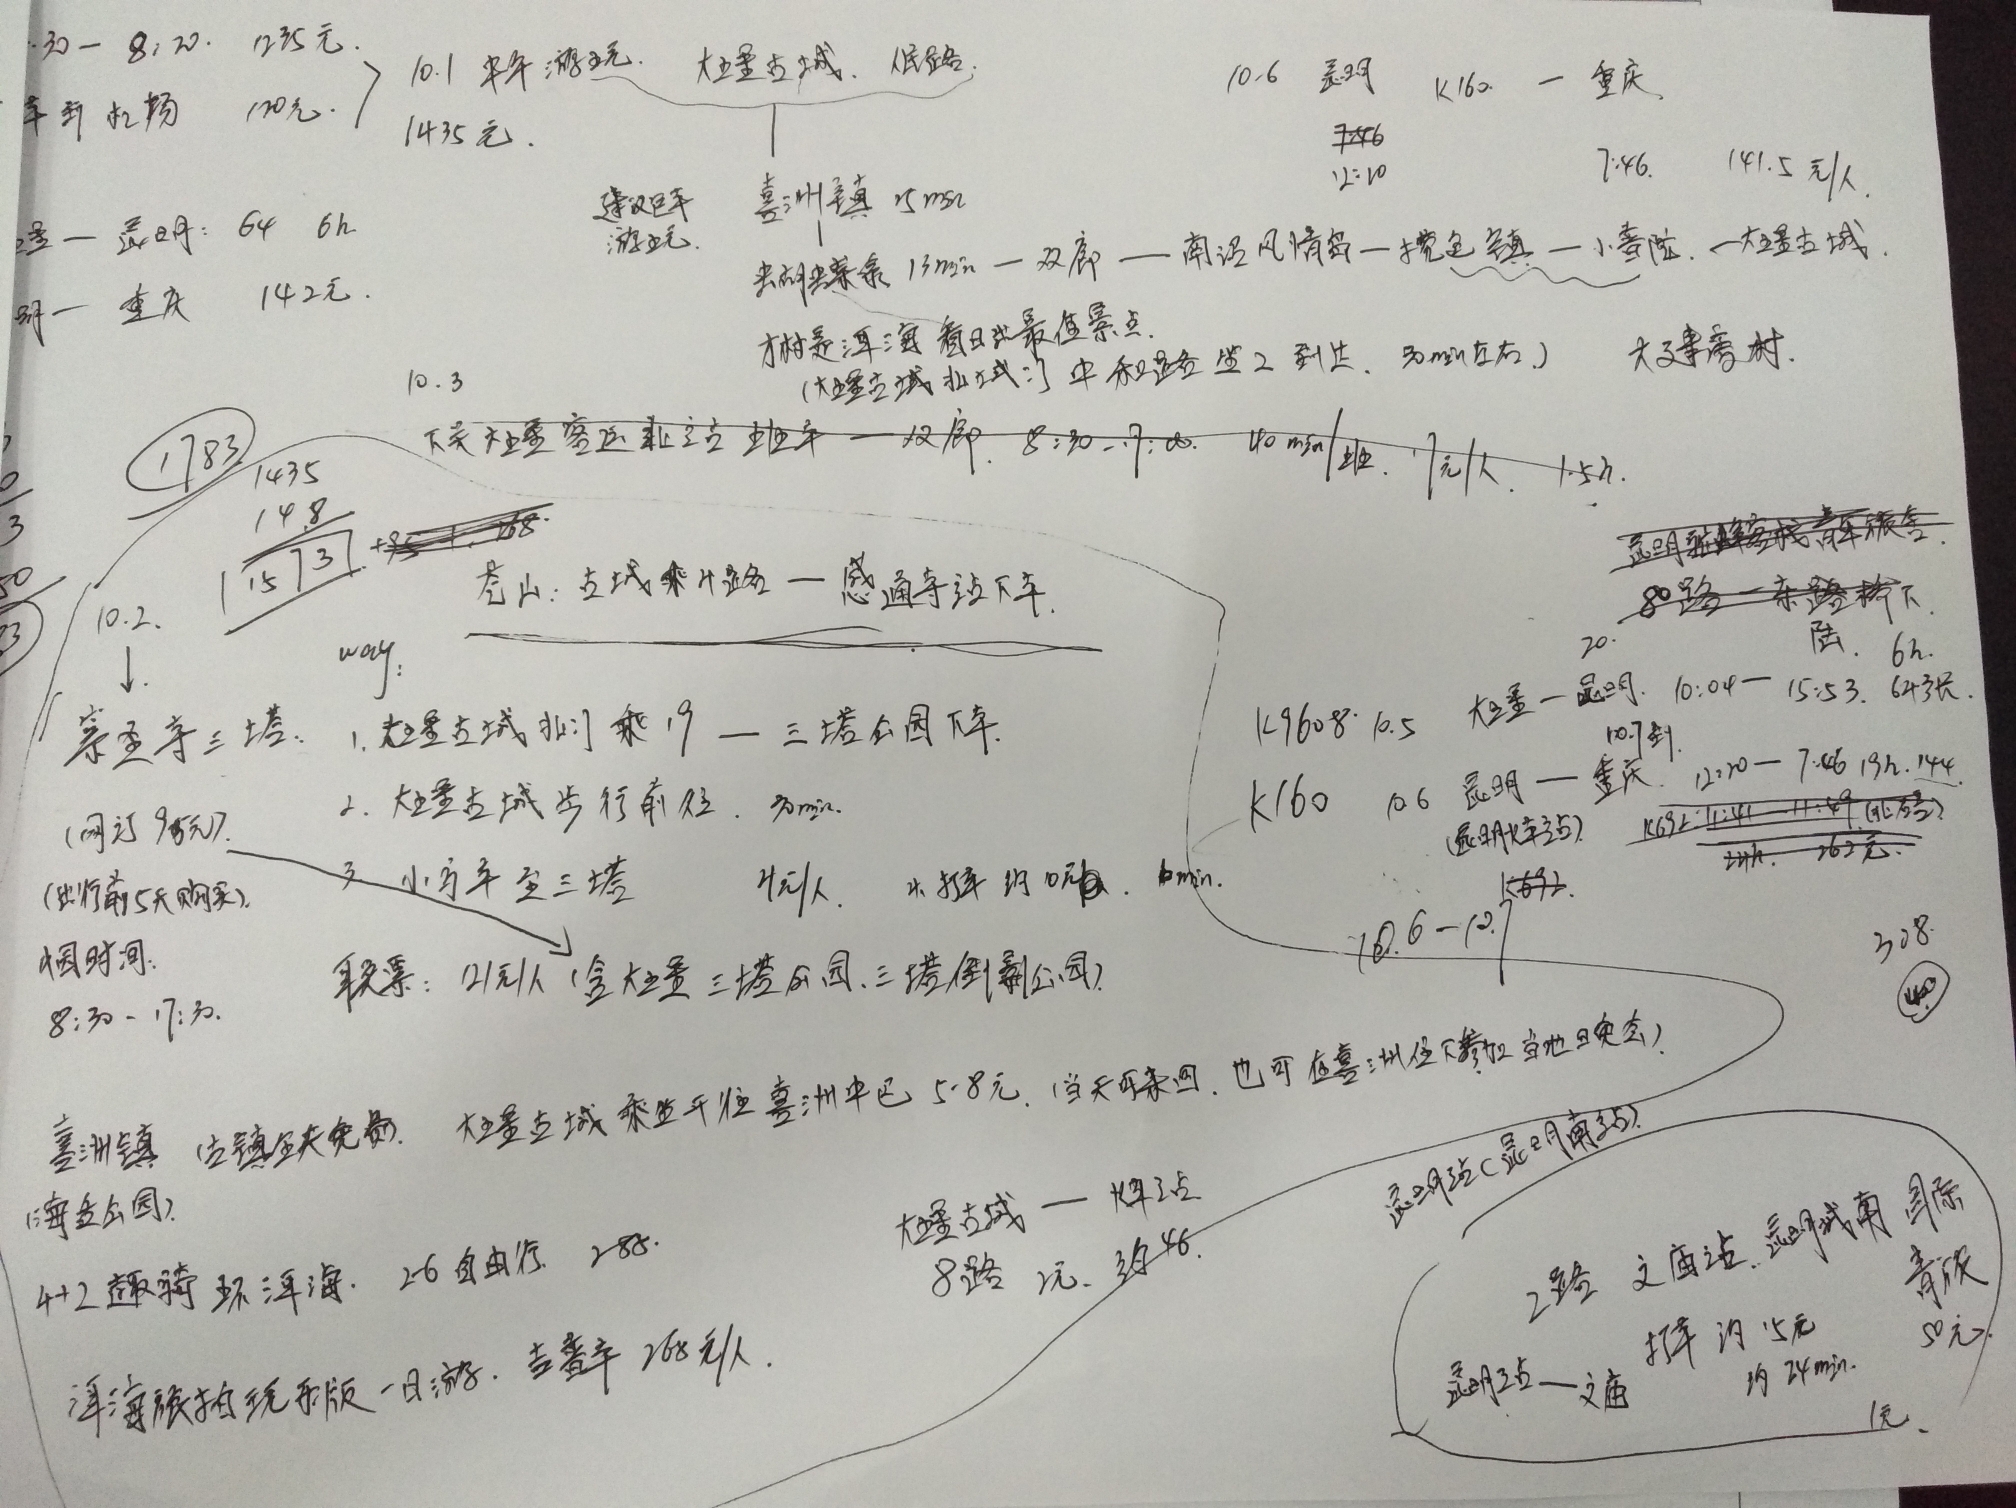 :30 — 8:20. 1235元.
车到机场 120元.
10.1 半年游玩. 大理古城. 人民路.
1435元.
10.6 昆明 K160 — 重庆
12:20 7:46. 141.5元/人
理 — 昆明: 64 6h
明 — 重庆 142元.
建议包车
游玩.
喜洲镇 15min
13min — 双廊 — 南诏风情岛 — 挖色镇 — 小普陀. — 大理古城.
才村是洱海看日出最佳景点.
(大理古城北城门 中和路坐2到达. 30min左右)
10.3
下关大理客运北站 班车 — 双廊. 8:30-17:00. 40min/班. 17元/人. 1.5h.
1783
1435
148
1573
苍山: 古城乘4路 — 感通寺站下车.
80路 —
10.2.
way:
崇圣寺三塔.
1. 大理古城北门乘19 — 三塔公园下车.
2. 大理古城步行前往. 30min.
3. 小马车至三塔 4元/人
(出行前5天购买).
时间:
8:30 - 17:30.
联票: 121元/人 (含大理三塔公园、三塔倒影公园)
K9608 10.5 大理 — 昆明. 10:04 — 15:53. 6h.
K160 10.6 昆明 — 重庆. 12:20 — 7:46 19h. 144
10.7到.
(昆明火车站)
K692
10.6 — 10.7
328.
喜洲镇 (古镇免费). 大理古城乘坐开往喜洲中巴 5-8元. (当天可来回. 也可在喜洲住下参加当地晚会)
(海舌公园).
4+2 趣骑环洱海. 2-6自由行 288.
大理古城 — 火车站
8路 2元. 约46.
洱海旅拍玩乐版一日游. 吉普车 268元/人.
昆明站 (昆明南站)
2路 文庙站. 昆明城南国际
青旅
50元.
打车约15元
约24min.
昆明站 — 文庙
1元.